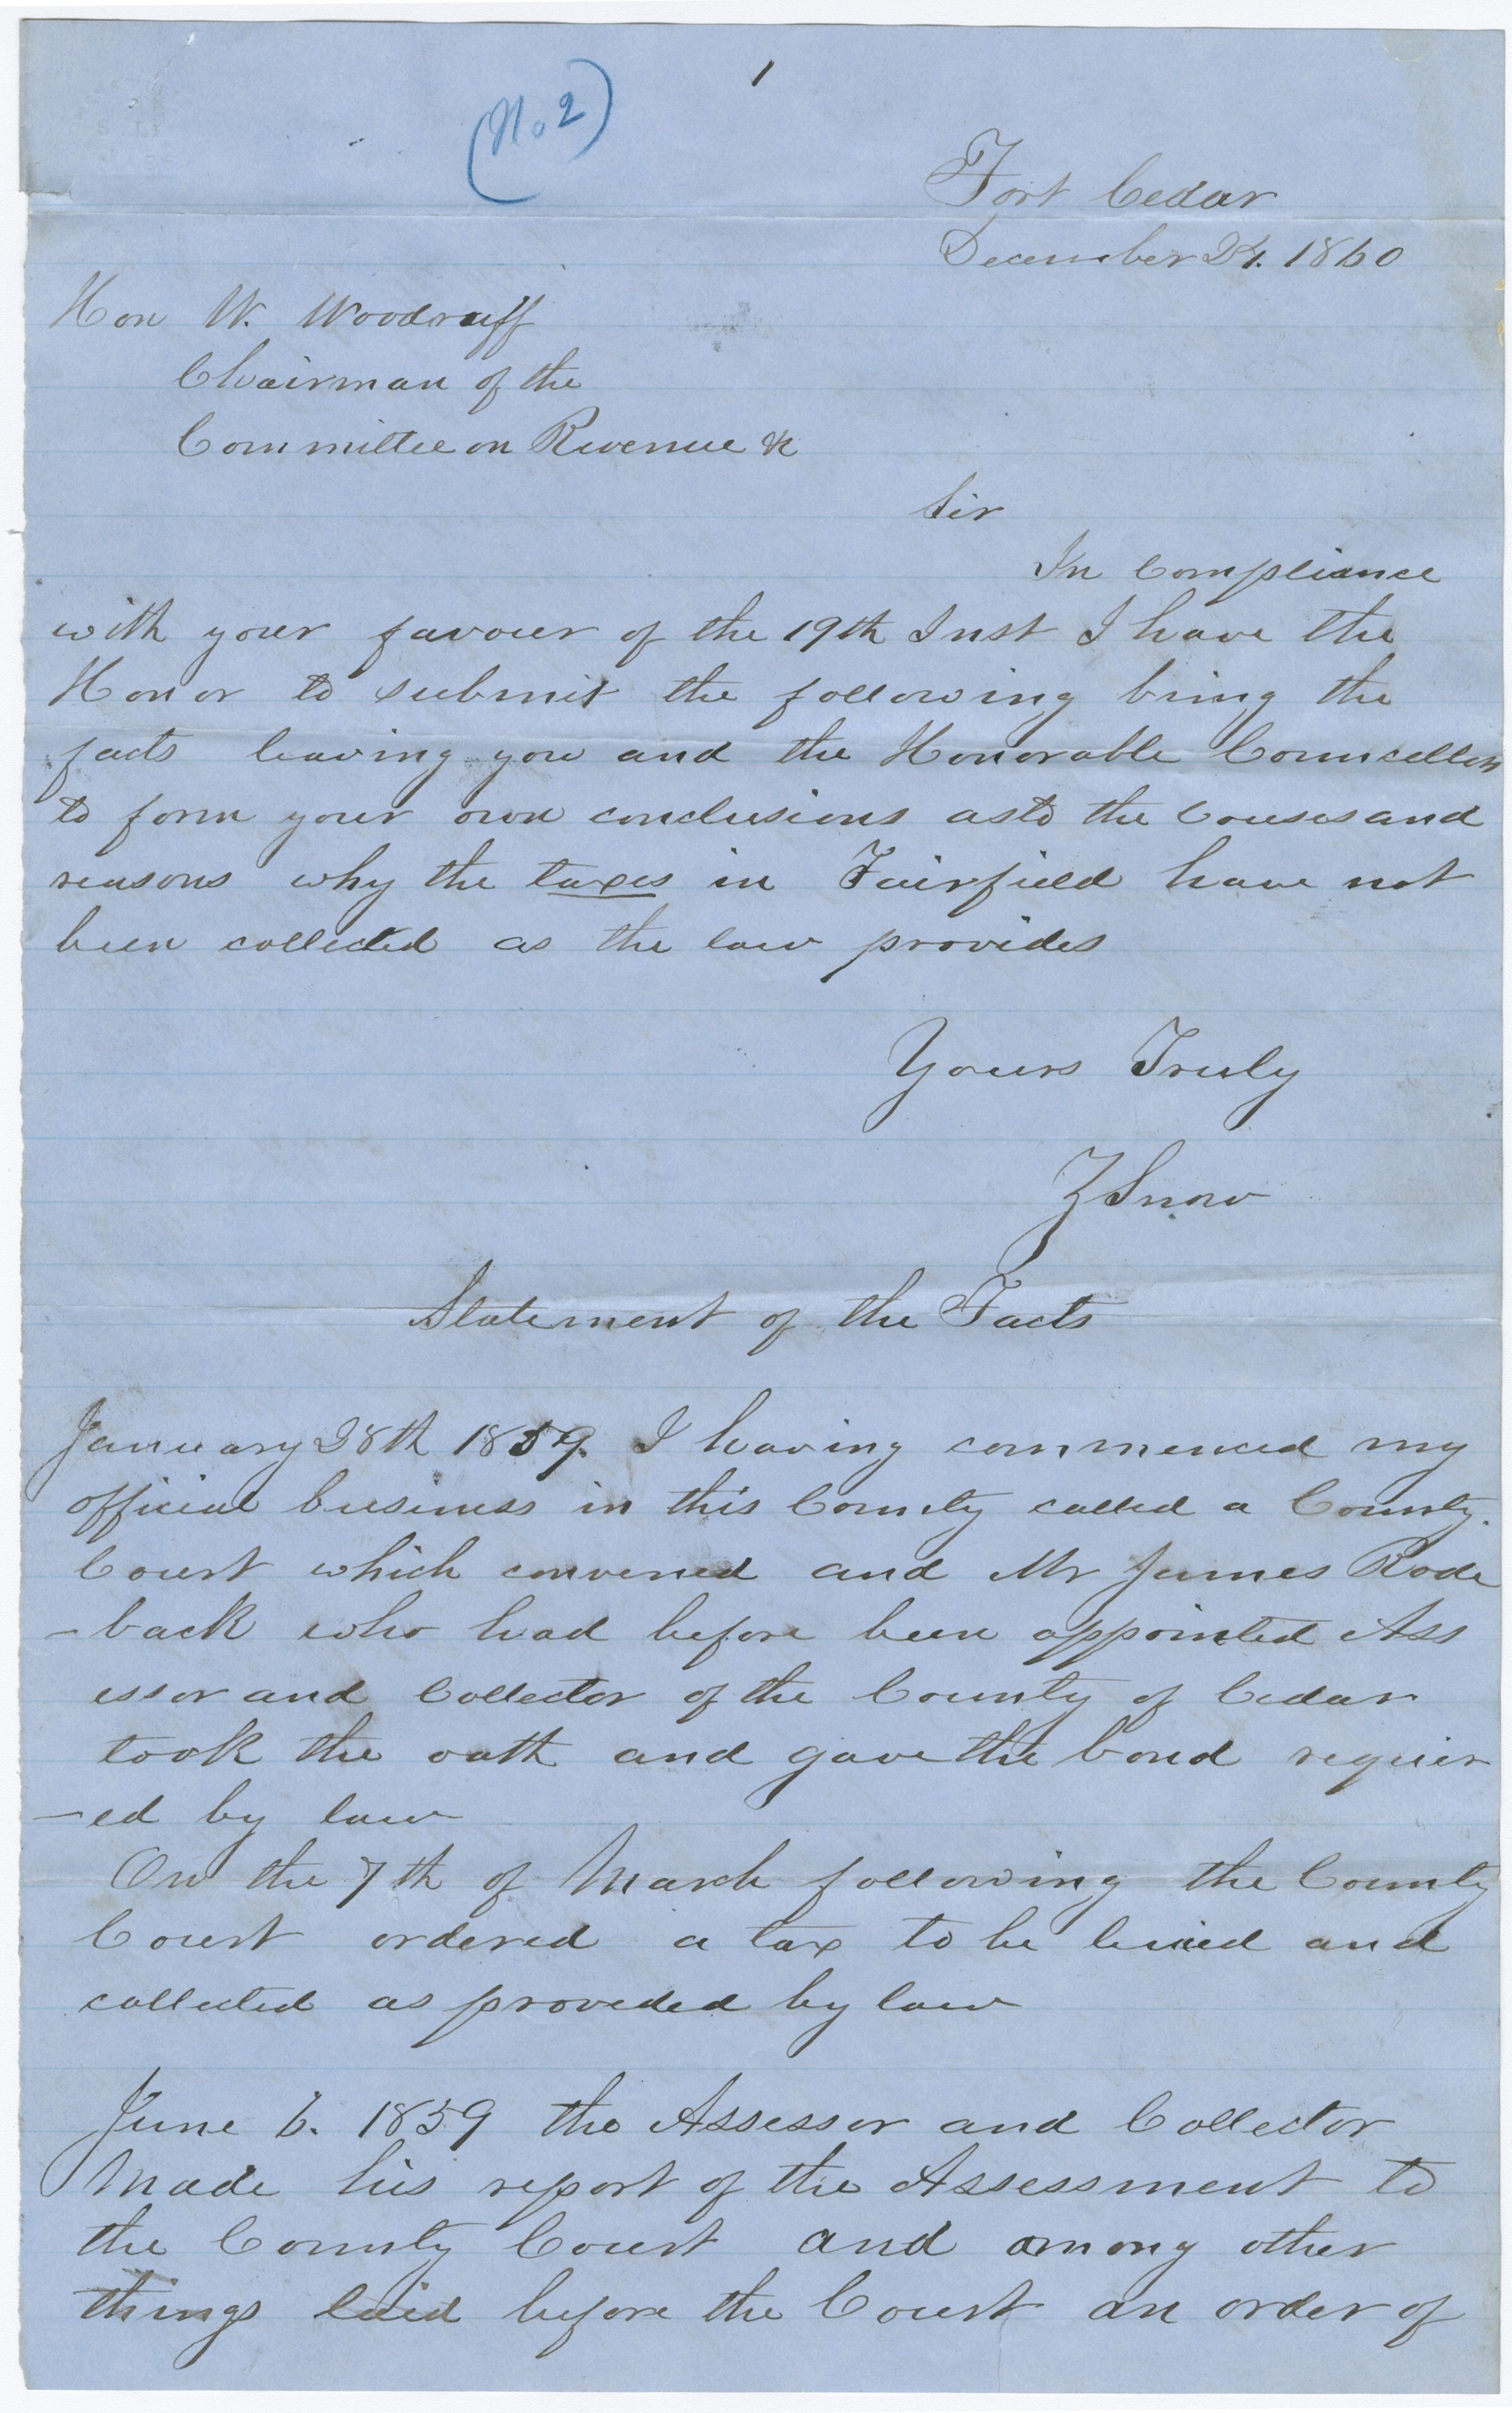 1
(No 2)
Fort Cedar
December 24. 1860
Hon W. Woodruff
Chairman of the
Committee on Revenue &c
Sir
In Compliance
with your favour of the 19th Inst I have the
Honor to submit the following bring the
facts leaving you and the Honorable Councellors
to form your own conclusions as to the Couses and
reasons why the taxes in Fairfield have not
been collected as the law provides
Yours Truly
Z Snow
Statement of the Facts
January 28th 1859. I having commenced my
official business in this County called a County.
Court which convened and Mr James Rode
-back who had before been appointed Ass
essor and Collector of the County of Cedar
took the oath and gave the bond requier
-ed by law
On the 7th of March following the County
Court ordered a tax to be levied and
collected as proveded by law
June 6. 1859 the Assessor and Collector
Made his report of the Assessment to
the County Court and among other
things laid before the Court an order of